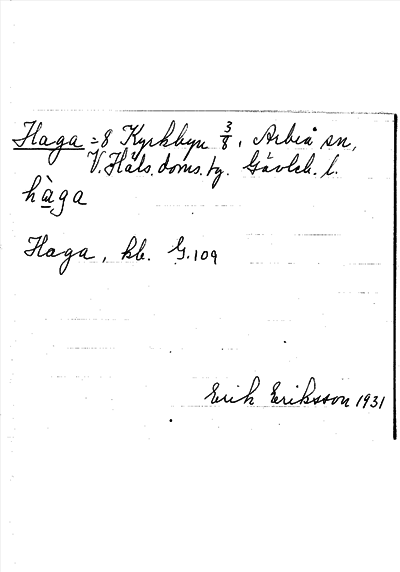 Haga = 8 Kyrkbyn 3/8, Arbrå sn,
V. Häls. doms. tg. Gävleb. l.
hàga
Haga, kb. G. 109
Erik Eriksson 1931